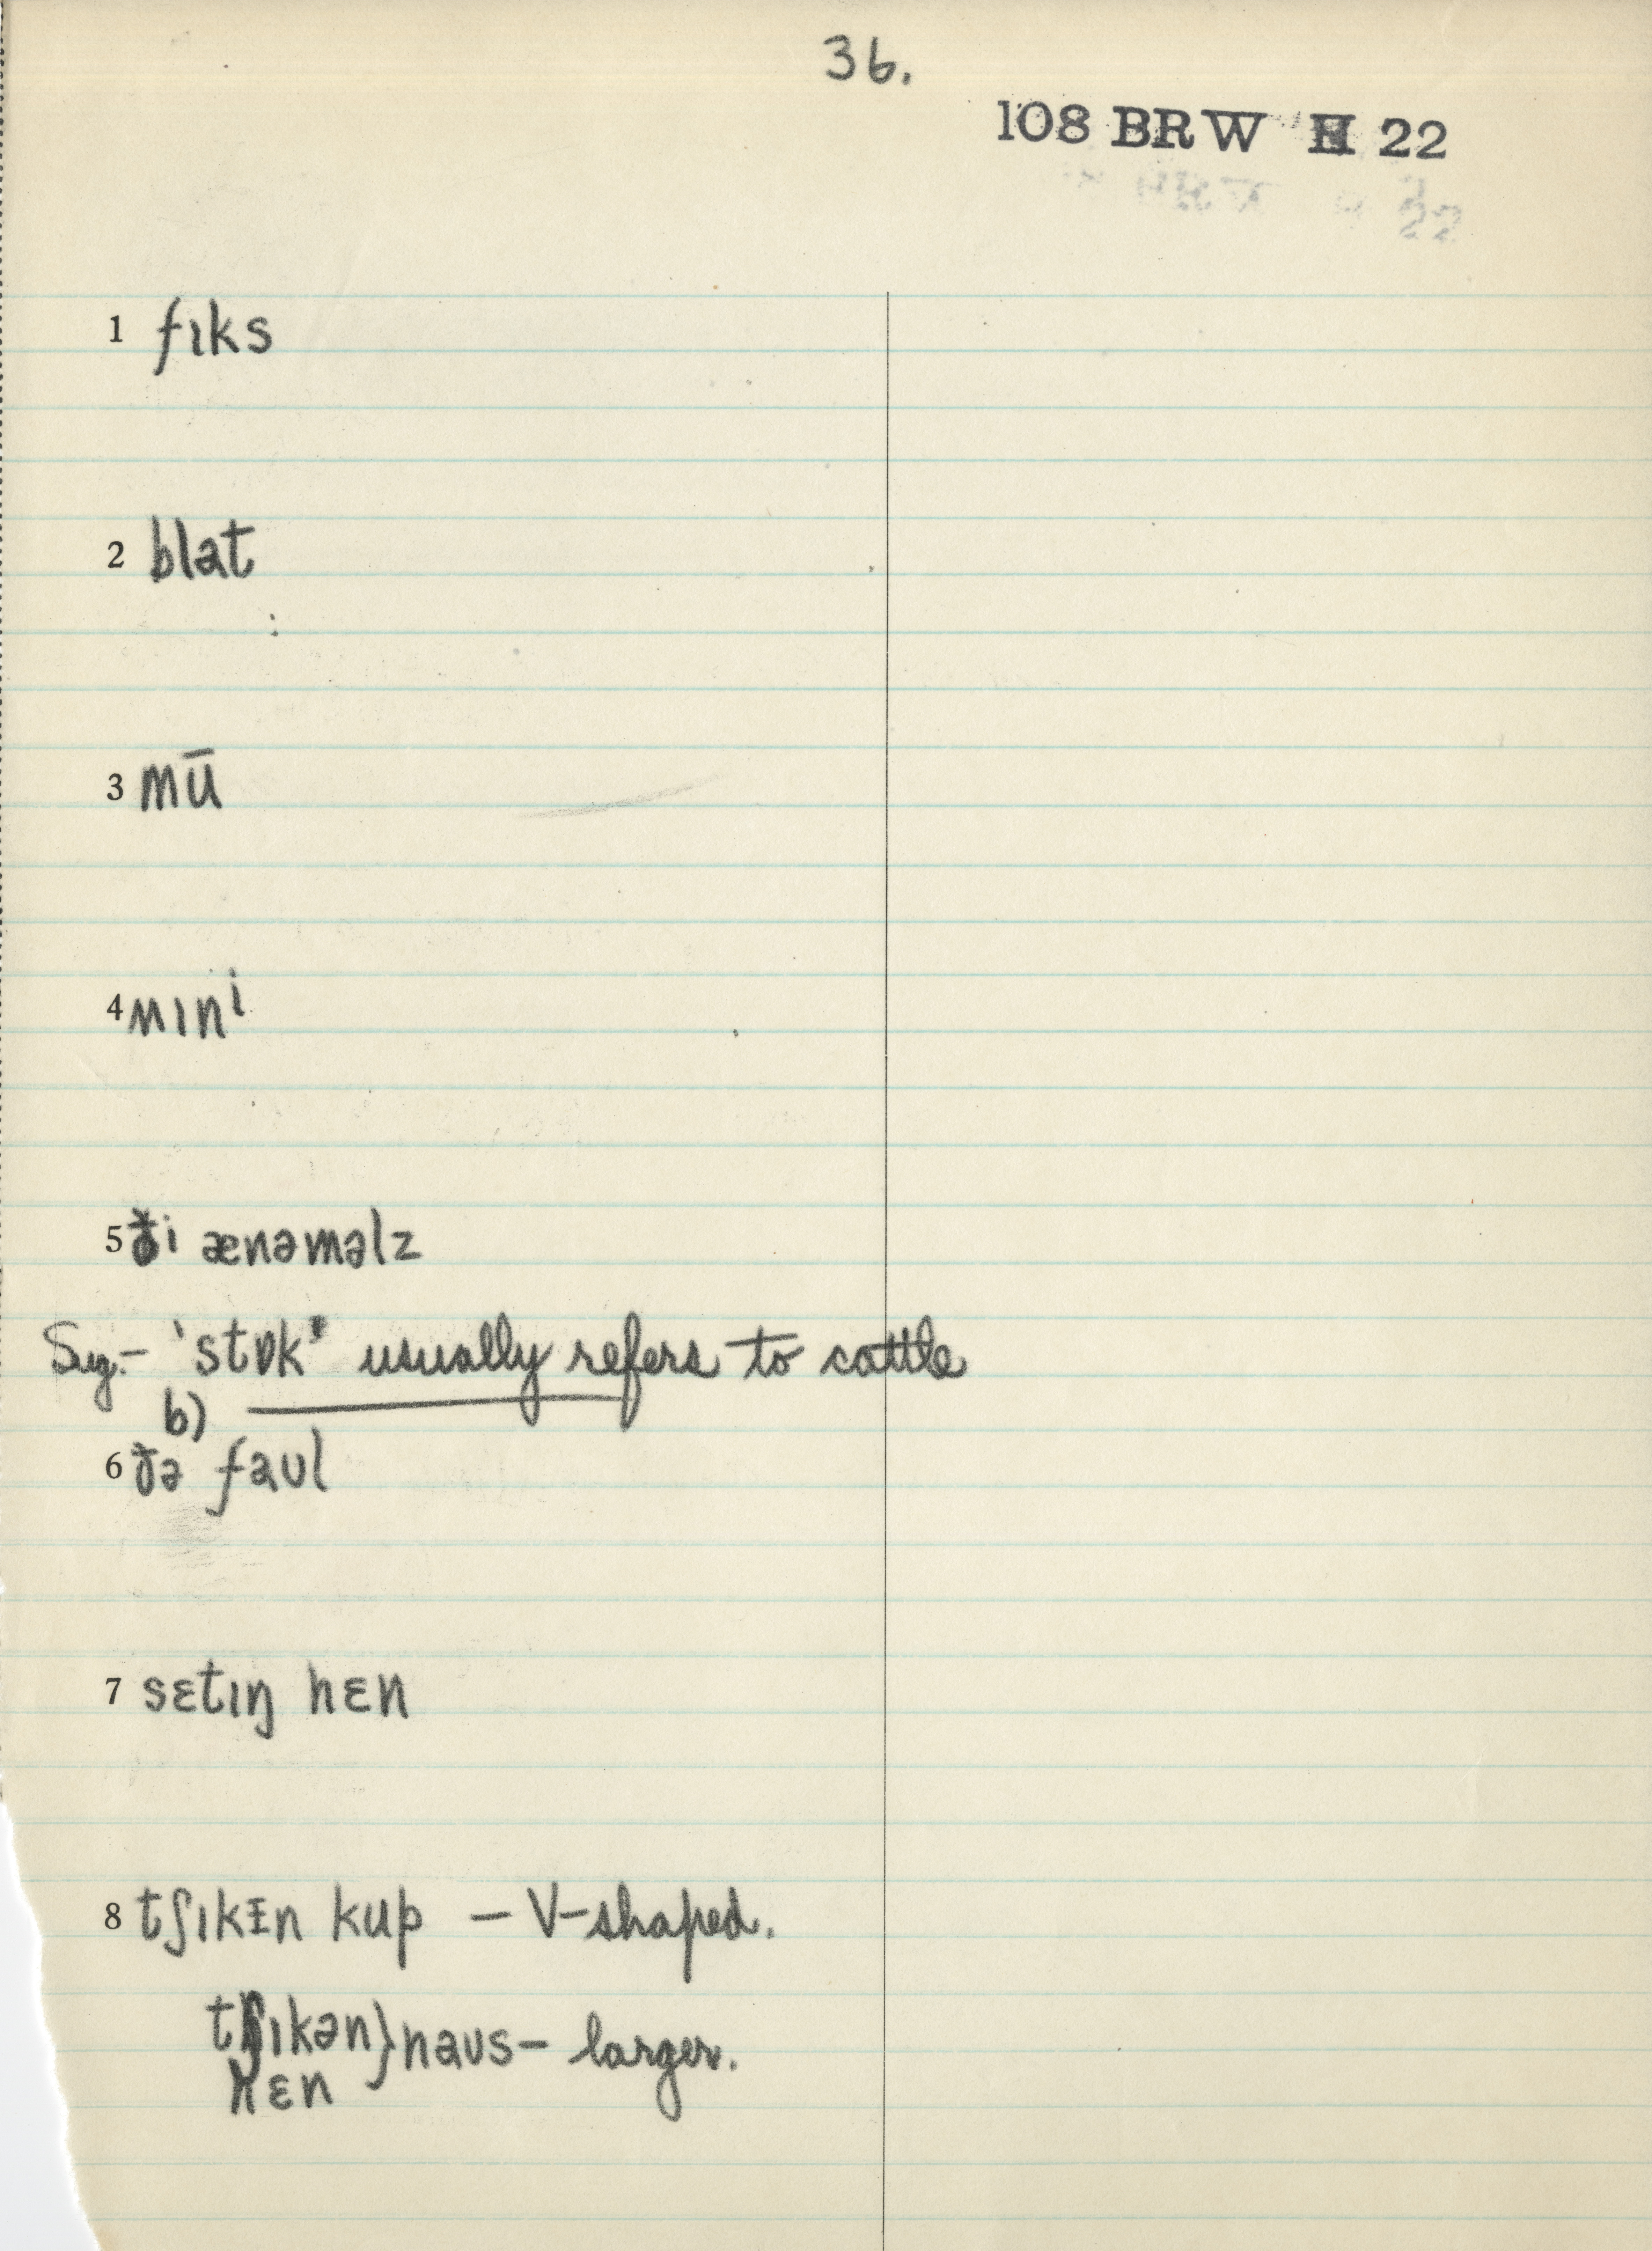 36.
108 BRW H 22
1 fɪks
2 blat
3 mū
4 wɪnⁱ
5 ði ænəməlz
Sug.- 'stɒk' usually refers to cattle
b)
6 ðə faʊl
7 sɛtɪŋ hɛn
8 tʃɪkɪn kup – V-shaped.
tʃɪkən} haʊs – larger.
hɛn